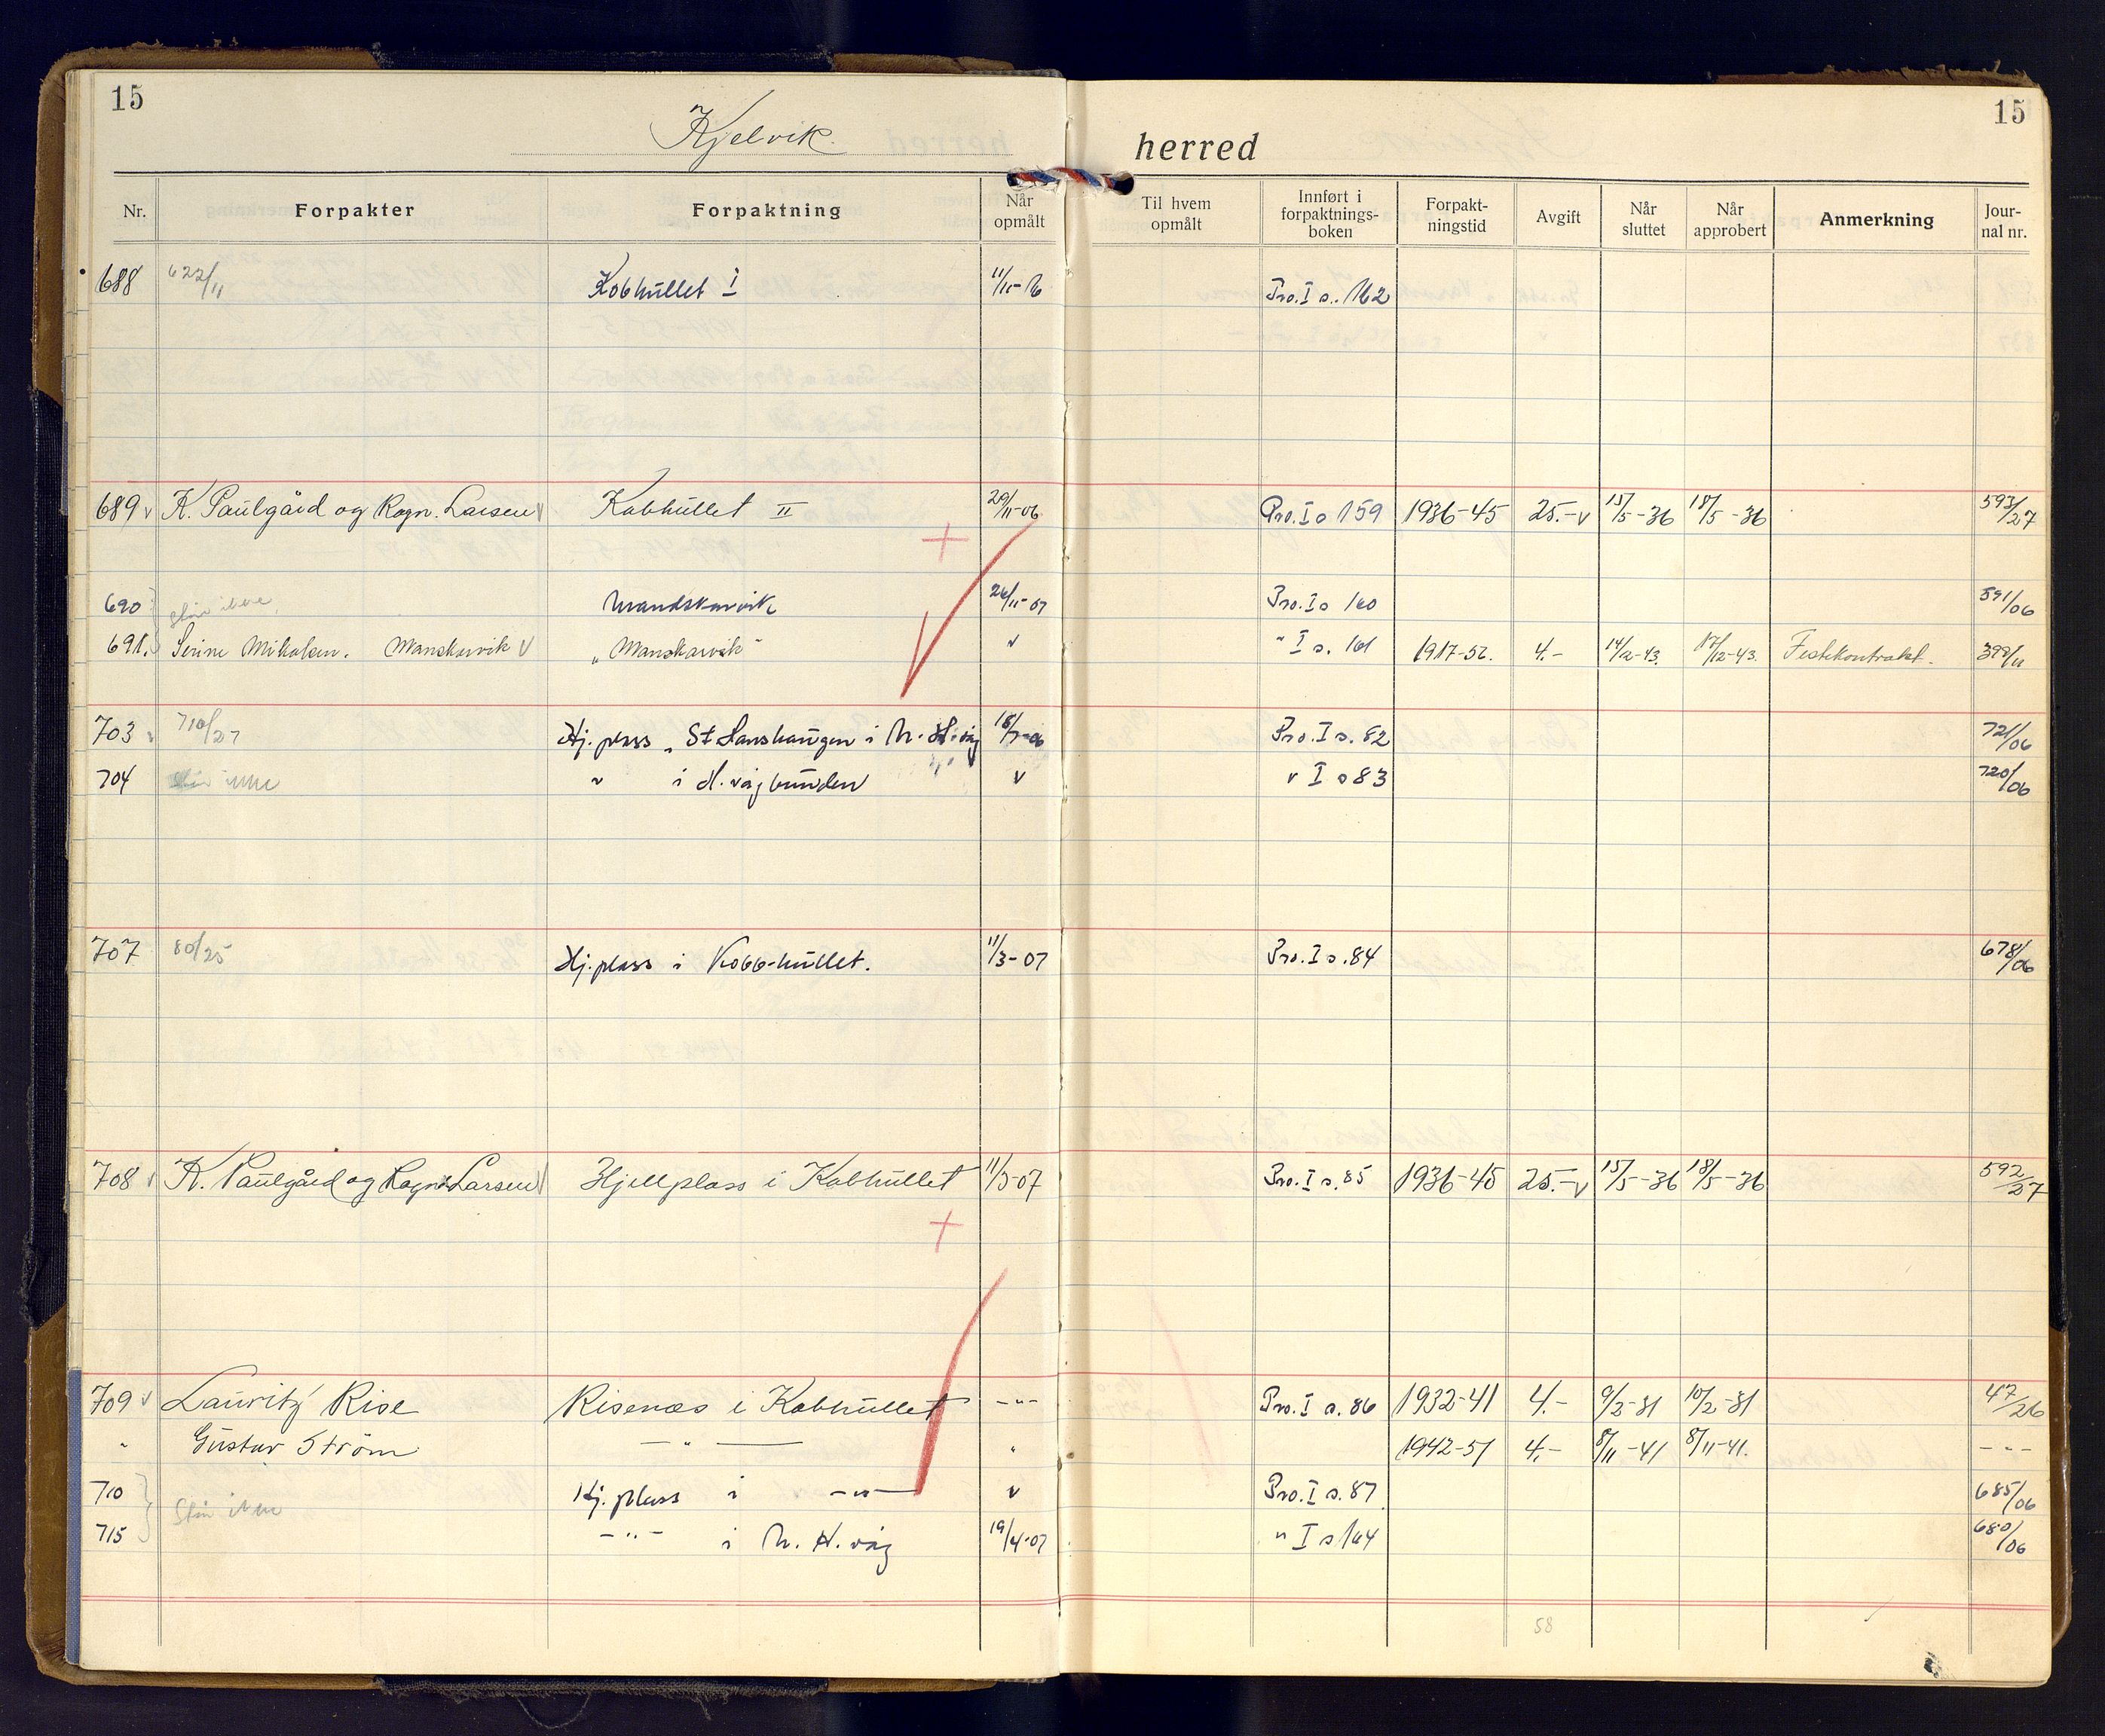 15 15
Kjelvik herred
Nr. Forpakter Forpaktning Når opmålt Til hvem opmålt Innført i forpaktnings-boken Forpakt-ningstid Avgift Når sluttet Når approbert Anmerkning Jour-nal nr.
688 622/11 Kobhullet I 11/11-16 Pro. I s. 162
689 v K. Paulgård og Ragn. Larsen v Kobhullet II 29/11-06 Pro. I s 159 1936-45 25.- v 15/5-36 18/5-36 593/27
690 Står ikke Mandskarvik 26/11-07 Pro. I s 160 591/06
691. Serine Mikalsen. Manskarvik v „Manskarvik" v " I s. 161 1917-56. 4.- 14/2-43. 17/12-43. Festekontrakt. 399/11
703 v 710/27 Hj. plass „St Hanshaugen i N. H. våg 18/7-06 Pro. I s. 82 721/06
704 Står ikke " i H. vågbunden v v I s 83 720/06
707 80/25 Hj. plass i Kobb-hullet. 11/3-07 Pro. I s. 84 678/06
708 v K. Paulgård og Ragn. Larsen v Hjellplass i Kobhullet 11/3-07 Pro. I s. 85 1936-45 25.- v 15/5-36 18/5-36 592/27
709 v Lauritz Rise Risenæs i Kobhullet -"- Pro. I s. 86 1932-41 4.- 9/2-31 10/2-31 47/26
" Gustav Ström -"- " 1942-51 4.- 8/11-41 8/11-41. -"-
710 Står ikke Hj. plass i -"- v Pro. I s. 87 685/06
715 -"- i N. H. våg 19/4-07 " I s 164 680/06
58